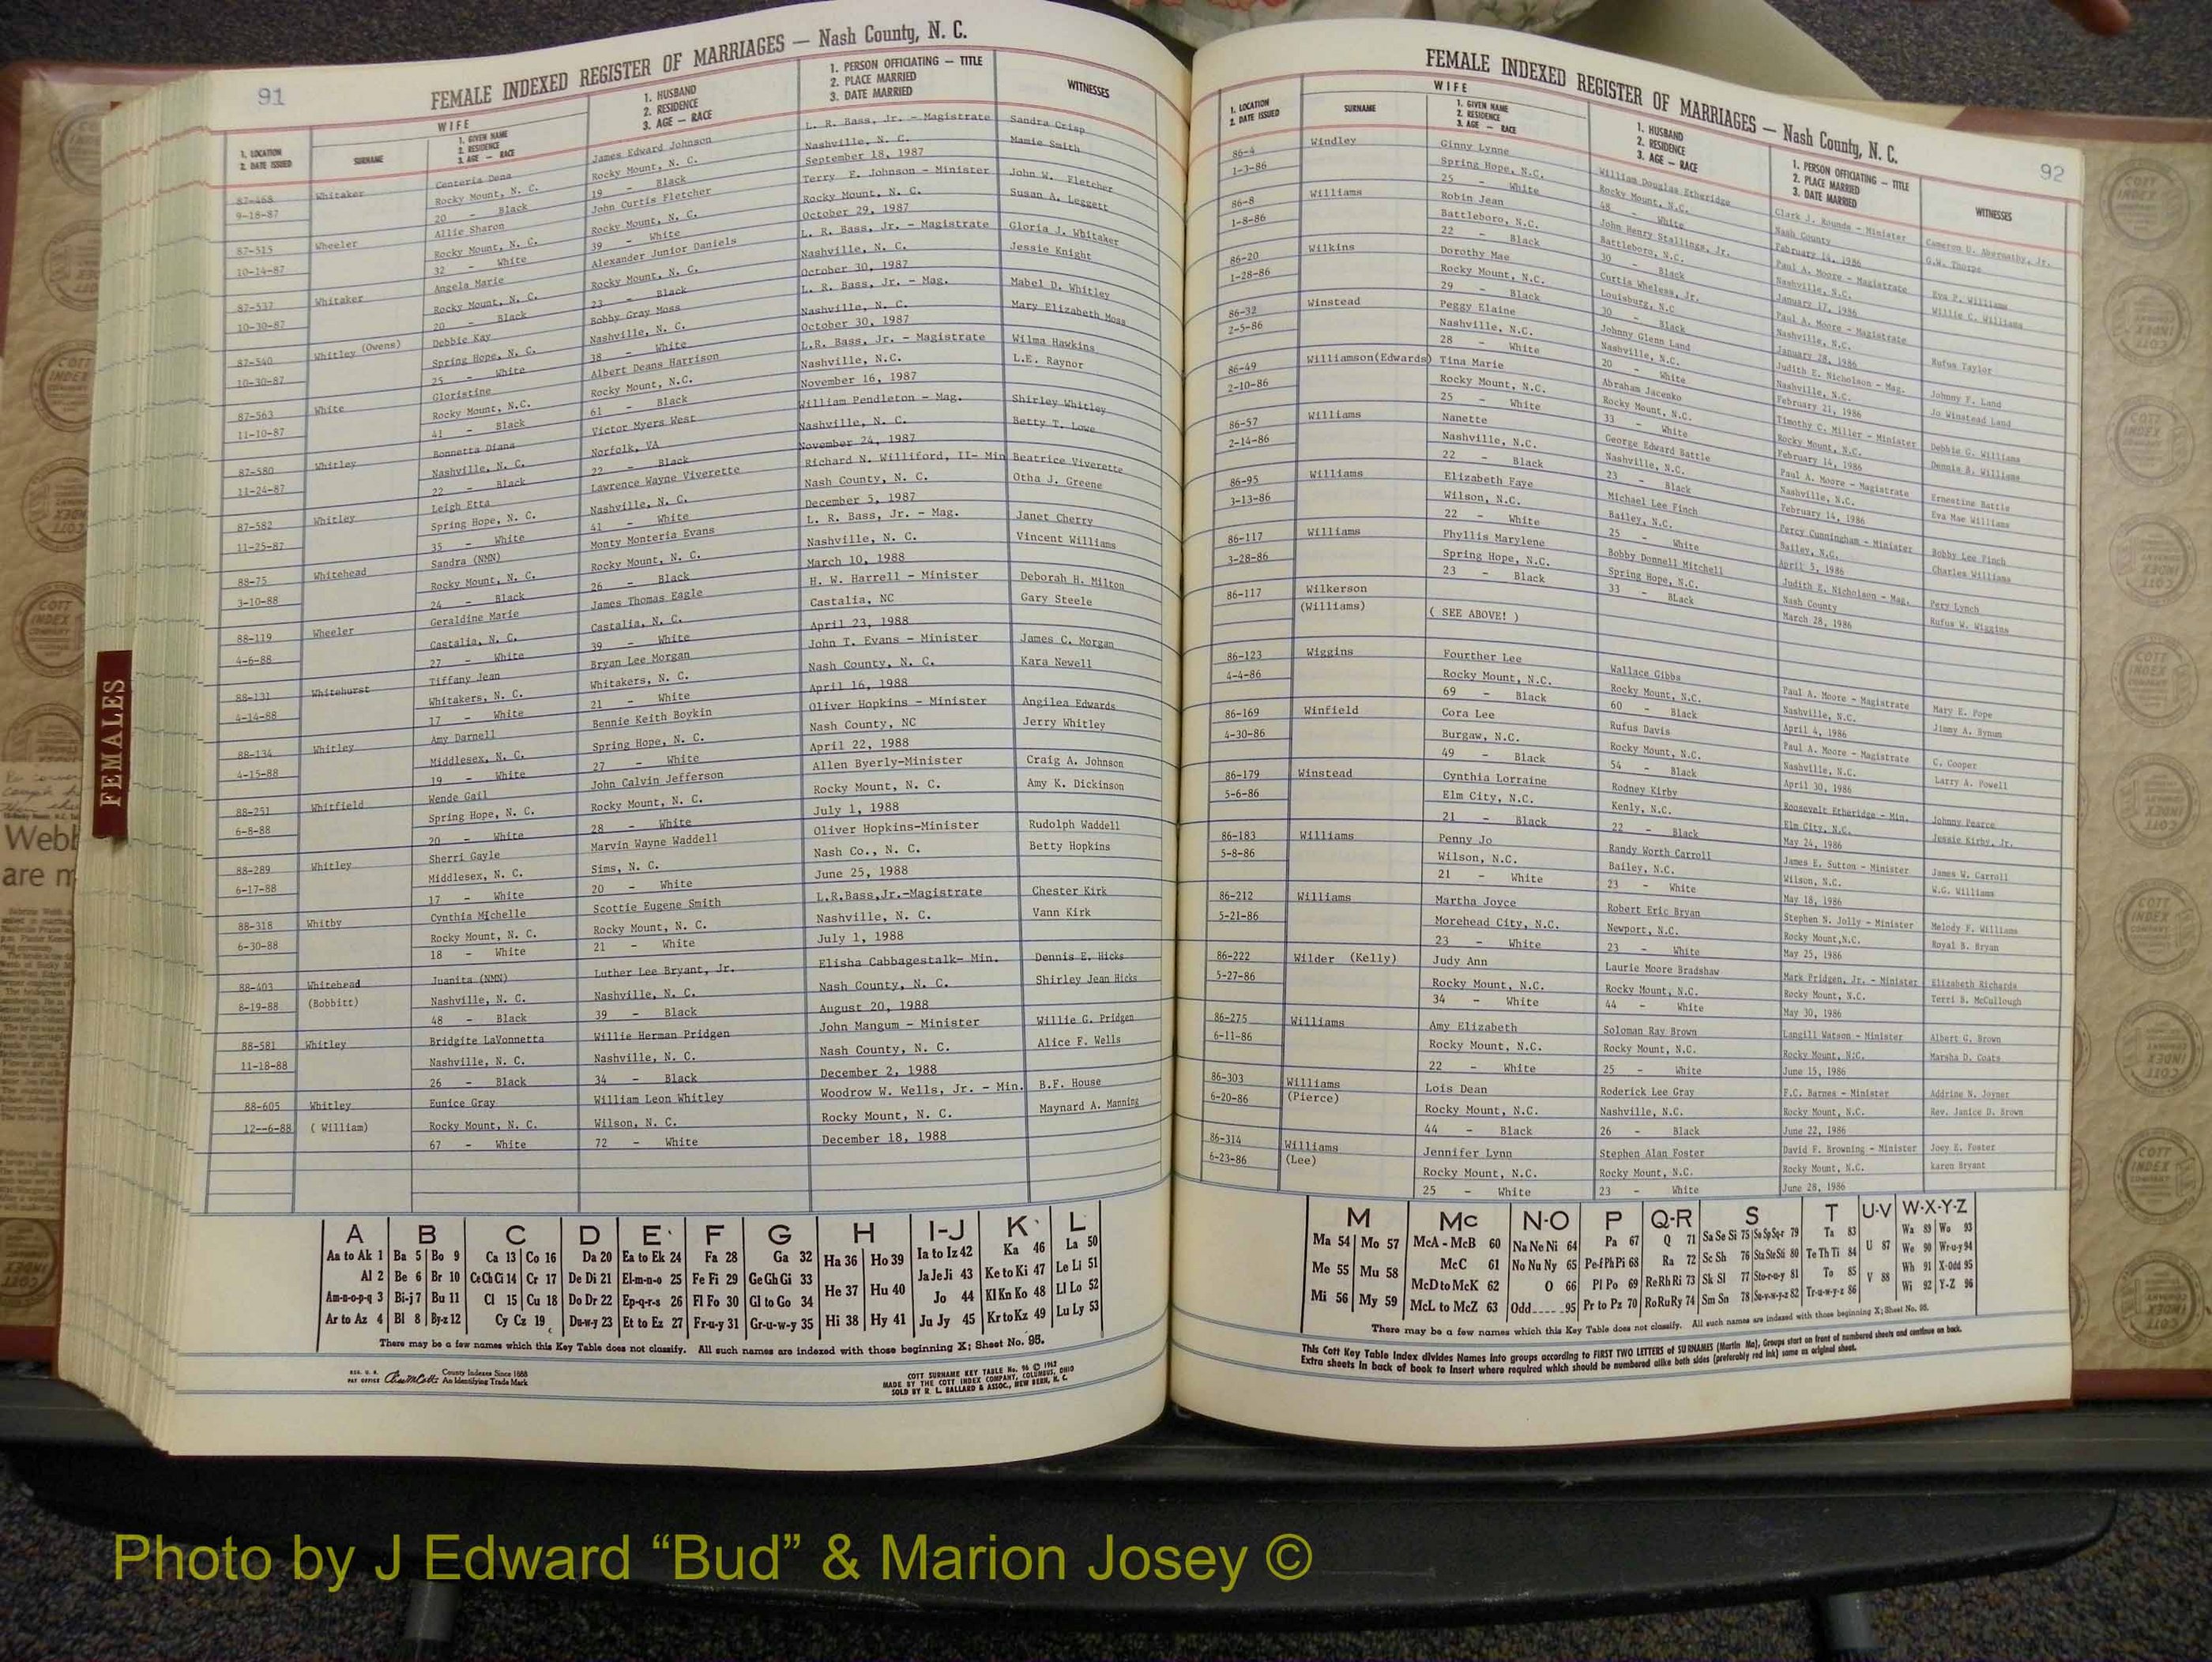 91
FEMALE INDEXED REGISTER OF MARRIAGES — Nash County, N. C.
1. LOCATION
2. DATE ISSUED
WIFE
SURNAME
1. GIVEN NAME
2. RESIDENCE
3. AGE — RACE
1. HUSBAND
2. RESIDENCE
3. AGE — RACE
1. PERSON OFFICIATING — TITLE
2. PLACE MARRIED
3. DATE MARRIED
WITNESSES
87-468 Whitaker Centeria Dena James Edward Johnson L. R. Bass, Jr. - Magistrate Sandra Crisp
9-18-87 Rocky Mount, N. C. Rocky Mount, N. C. Nashville, N. C. Mamie Smith
20 - Black 19 - Black September 18, 1987
87-515 Wheeler Allie Sharon John Curtis Fletcher Terry E. Johnson - Minister John W. Fletcher
10-14-87 Rocky Mount, N. C. Rocky Mount, N. C. Rocky Mount, N. C. Susan A. Leggett
32 - White 39 - White October 29, 1987
87-537 Whitaker Angela Marie Alexander Junior Daniels L. R. Bass, Jr. - Magistrate Gloria J. Whitaker
10-30-87 Rocky Mount, N. C. Rocky Mount, N. C. Nashville, N. C. Jessie Knight
20 - Black 23 - Black October 30, 1987
87-540 Whitley (Owens) Debbie Kay Bobby Gray Moss L. R. Bass, Jr. - Mag. Mabel D. Whitley
10-30-87 Spring Hope, N. C. Nashville, N. C. Nashville, N. C. Mary Elizabeth Moss
25 - White 38 - White October 30, 1987
87-563 White Gloristine Albert Deans Harrison L.R. Bass, Jr. - Magistrate Wilma Hawkins
11-10-87 Rocky Mount, N.C. Rocky Mount, N.C. Nashville, N.C. L.E. Raynor
41 - Black 61 - Black November 16, 1987
87-580 Whitley Bonnetta Diana Victor Myers West William Pendleton - Mag. Shirley Whitley
11-24-87 Nashville, N. C. Norfolk, VA Nashville, N. C. Betty T. Lowe
22 - Black 22 - Black November 24, 1987
87-582 Whitley Leigh Etta Lawrence Wayne Viverette Richard N. Williford, II- Min Beatrice Viverette
11-25-87 Spring Hope, N. C. Nashville, N. C. Nash County, N. C. Otha J. Greene
35 - White 41 - White December 5, 1987
88-75 Whitehead Sandra (NMN) Monty Monteria Evans L. R. Bass, Jr. - Mag. Janet Cherry
3-10-88 Rocky Mount, N. C. Rocky Mount, N. C. Nashville, N. C. Vincent Williams
24 - Black 26 - Black March 10, 1988
88-119 Wheeler Geraldine Marie James Thomas Eagle H. W. Harrell - Minister Deborah H. Milton
4-6-88 Castalia, N. C. Castalia, N. C. Castalia, NC Gary Steele
27 - White 39 - White April 23, 1988
88-131 Whitehurst Tiffany Jean Bryan Lee Morgan John T. Evans - Minister James C. Morgan
4-14-88 Whitakers, N. C. Whitakers, N. C. Nash County, N. C. Kara Newell
17 - White 21 - White April 16, 1988
88-134 Whitley Amy Darnell Bennie Keith Boykin Oliver Hopkins - Minister Angilea Edwards
4-15-88 Middlesex, N. C. Spring Hope, N. C. Nash County, NC Jerry Whitley
19 - White 27 - White April 22, 1988
88-251 Whitfield Wende Gail John Calvin Jefferson Allen Byerly-Minister Craig A. Johnson
6-8-88 Spring Hope, N. C. Rocky Mount, N. C. Rocky Mount, N. C. Amy K. Dickinson
20 - White 28 - White July 1, 1988
88-289 Whitley Sherri Gayle Marvin Wayne Waddell Oliver Hopkins-Minister Rudolph Waddell
6-17-88 Middlesex, N. C. Sims, N. C. Nash Co., N. C. Betty Hopkins
17 - White 20 - White June 25, 1988
88-318 Whitby Cynthia MIchelle Scottie Eugene Smith L.R.Bass,Jr.-Magistrate Chester Kirk
6-30-88 Rocky Mount, N. C. Rocky Mount, N. C. Nashville, N. C. Vann Kirk
18 - White 21 - White July 1, 1988
88-403 Whitehead Juanita (NMN) Luther Lee Bryant, Jr. Elisha Cabbagestalk- Min. Dennis E. Hicks
8-19-88 (Bobbitt) Nashville, N. C. Nashville, N. C. Nash County, N. C. Shirley Jean Hicks
48 - Black 39 - Black August 20, 1988
88-581 Whitley Bridgite LaVonnetta Willie Herman Pridgen John Mangum - Minister Willie G. Pridgen
11-18-88 Nashville, N. C. Nashville, N. C. Nash County, N. C. Alice F. Wells
26 - Black 34 - Black December 2, 1988
88-605 Whitley Eunice Gray William Leon Whitley Woodrow W. Wells, Jr. - Min. B.F. House
12--6-88 ( William) Rocky Mount, N. C. Wilson, N. C. Rocky Mount, N. C. Maynard A. Manning
67 - White 72 - White December 18, 1988
A B C D E F G H I-J K L
Aa to Ak 1 Ba 5 Bo 9 Ca 13 Co 16 Da 20 Ea to Ek 24 Fa 28 Ga 32 Ha 36 Ho 39 Ia to Iz 42 Ka 46 La 50
Al 2 Be 6 Br 10 Ce Ch Ci 14 Cr 17 De Di 21 El-m-n-o 25 Fe Fi 29 Ge Gh Gi 33 He 37 Hu 40 Ja Je Ji 43 Ke to Ki 47 Le Li 51
Am-n-o-p-q 3 Bi-j 7 Bu 11 Cl 15 Cu 18 Do Dr 22 Ep-q-r-s 26 Fl Fo 30 Gl to Go 34 Jo 44 Kl Kn Ko 48 Ll Lo 52
Ar to Az 4 Bl 8 By-z 12 Cy Cz 19 Du-w-y 23 Et to Ez 27 Fr-u-y 31 Gr-u-w-y 35 Hi 38 Hy 41 Ju Jy 45 Kr to Kz 49 Lu Ly 53
There may be a few names which this Key Table does not classify. All such names are indexed with those beginning X; Sheet No. 95.
REG. U. S.
PAT OFFICE
County Indexes Since 1888
An Identifying Trade Mark
COTT SURNAME KEY TABLE No. 96 © 1962
MADE BY THE COTT INDEX COMPANY, COLUMBUS, OHIO
SOLD BY R. L. BALLARD & ASSOC., NEW BERN, N. C.
FEMALES
92
FEMALE INDEXED REGISTER OF MARRIAGES — Nash County, N. C.
1. LOCATION
2. DATE ISSUED
WIFE
SURNAME
1. GIVEN NAME
2. RESIDENCE
3. AGE — RACE
1. HUSBAND
2. RESIDENCE
3. AGE — RACE
1. PERSON OFFICIATING — TITLE
2. PLACE MARRIED
3. DATE MARRIED
WITNESSES
86-4 Windley Ginny Lynne William Douglas Etheridge Clark J. Rounds - Minister Cameron U. Abernathy, Jr.
1-3-86 Spring Hope, N.C. Rocky Mount, N.C. Nash County G.W. Thorpe
25 - White 48 - White February 14, 1986
86-8 Williams Robin Jean John Henry Stallings, Jr. Paul A. Moore - Magistrate Eva P. Williams
1-8-86 Battleboro, N.C. Battleboro, N.C. Nashville, N.C. Willie C. Williams
22 - Black 30 - Black January 17, 1986
86-20 Wilkins Dorothy Mae Curtis Wheless, Jr. Paul A. Moore - Magistrate Rufus Taylor
1-28-86 Rocky Mount, N.C. Louisburg, N.C Nashville, N.C.
29 - Black 30 - Black January 28, 1986
86-32 Winstead Peggy Elaine Johnny Glenn Land Judith E. Nicholson - Mag. Johnny F. Land
2-5-86 Nashville, N.C. Nashville, N.C. Nashville, N.C. Jo Winstead Land
28 - White 20 - White February 21, 1986
86-49 Williamson(Edwards) Tina Marie Abraham Jacenko Timothy C. Miller - Minister Debbie G. Williams
2-10-86 Rocky Mount, N.C. Rocky Mount, N.C. Rocky Mount, N.C. Dennis B. Williams
25 - White 33 - White February 14, 1986
86-57 Williams Nanette George Edward Battle Paul A. Moore - Magistrate Ernestine Battle
2-14-86 Nashville, N.C. Nashville, N.C. Nashville, N.C. Eva Mae Williams
22 - Black 23 - Black February 14, 1986
86-95 Williams Elizabeth Faye Michael Lee Finch Percy Cunningham - Minister Bobby Lee Finch
3-13-86 Wilson, N.C. Bailey, N.C. Bailey, N.C. Charles Williams
22 - White 25 - White April 5, 1986
86-117 Williams Phyllis Marylene Bobby Donnell Mitchell Judith E. Nicholson - Mag. Pery Lynch
3-28-86 Spring Hope, N.C. Spring Hope, N.C. Nash County Rufus W. Wiggins
23 - Black 33 - BLack March 28, 1986
86-117 Wilkerson
(Williams) ( SEE ABOVE! )
86-123 Wiggins Fourther Lee Wallace Gibbs Paul A. Moore - Magistrate Mary E. Pope
4-4-86 Rocky Mount, N.C. Rocky Mount, N.C. Nashville, N.C. Jimmy A. Bynum
69 - Black 60 - Black April 4, 1986
86-169 Winfield Cora Lee Rufus Davis Paul A. Moore - Magistrate C. Cooper
4-30-86 Burgaw, N.C. Rocky Mount, N.C. Nashville, N.C. Larry A. Powell
49 - Black 54 - Black April 30, 1986
86-179 Winstead Cynthia Lorraine Rodney Kirby Roosevelt Etheridge - Min. Johnny Pearce
5-6-86 Elm City, N.C. Kenly, N.C. Elm City, N.C. Jessie Kirby, Jr.
21 - Black 22 - Black May 24, 1986
86-183 Williams Penny Jo Randy Worth Carroll James E. Sutton - Minister James W. Carroll
5-8-86 Wilson, N.C. Bailey, N.C. Wilson, N.C. W.G. Williams
21 - White 23 - White May 18, 1986
86-212 Williams Martha Joyce Robert Eric Bryan Stephen N. Jolly - Minister Melody F. Williams
5-21-86 Morehead City, N.C. Newport, N.C. Rocky Mount,N.C. Royal B. Bryan
23 - White 23 - White May 25, 1986
86-222 Wilder (Kelly) Judy Ann Laurie Moore Bradshaw Mark Fridgen, Jr. - Minister Elizabeth Richards
5-27-86 Rocky Mount, N.C. Rocky Mount, N.C. Rocky Mount, N.C. Terri B. McCullough
34 - White 44 - White May 30, 1986
86-275 Williams Amy Elizabeth Soloman Ray Brown Langill Watson - Minister Albert G. Brown
6-11-86 Rocky Mount, N.C. Rocky Mount, N.C. Rocky Mount, N.C. Marsha D. Coats
22 - White 25 - White June 15, 1986
86-303 Williams Lois Dean Roderick Lee Gray F.C. Barnes - Minister Addrine N. Joyner
6-20-86 (Pierce) Rocky Mount, N.C. Nashville, N.C. Rocky Mount, N.C. Rev. Janice D. Brown
44 - Black 26 - Black June 22, 1986
86-314 Williams Jennifer Lynn Stephen Alan Foster David F. Browning - Minister Joey E. Foster
6-23-86 (Lee) Rocky Mount, N.C. Rocky Mount, N.C. Rocky Mount, N.C. karen Bryant
25 - White 23 - White June 28, 1986
M Mc N-O P Q-R S T U-V W-X-Y-Z
Ma 54 Mo 57 McA - McB 60 Na Ne Ni 64 Pa 67 Q 71 Sa Se Si 75 So Sp Sq-r 79 Ta 83 U 87 Wa 89 Wo 93
Me 55 Mu 58 McC 61 No Nu Ny 65 Pe-f Ph Pi 68 Ra 72 Sc Sh 76 Sta Ste Sti 80 Te Th Ti 84 We 90 Wr-u-y 94
McD to McK 62 O 66 Pl Po 69 Re Rh Ri 73 Sk Sl 77 Sto-r-u-y 81 To 85 V 88 Wh 91 X-Odd 95
Mi 56 My 59 McL to McZ 63 Odd 95 Pr to Pz 70 Ro Ru Ry 74 Sm Sn 78 Su-v-w-y-z 82 Tr-u-w-y-z 86 Wi 92 Y-Z 96
There may be a few names which this Key Table does not classify. All such names are indexed with those beginning X; Sheet No. 95.
This Cott Key Table Index divides Names into groups according to FIRST TWO LETTERS of SURNAMES (Martin Ma), Groups start on front of numbered sheets and continue on back.
Extra sheets in back of book to insert where required which should be numbered alike both sides (preferably red ink) same as original sheet.
COTT
INDEX
COMPANY
Webb
are m
Photo by J Edward “Bud” & Marion Josey ©